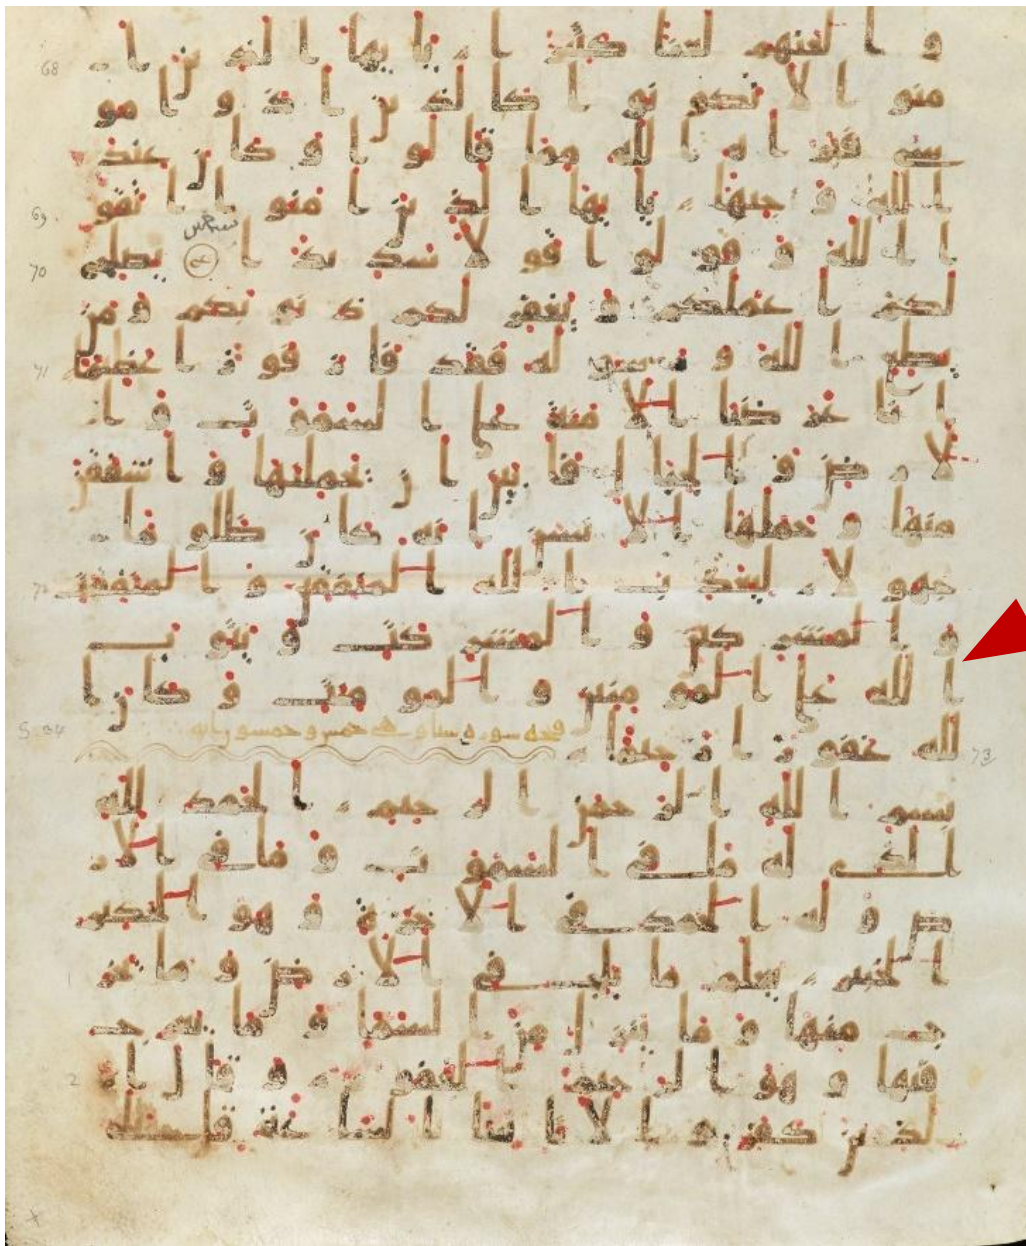 و العنهم لعنا كبيرا يا يها الذين ا
68
منوا لا تكونوا كالذين اذوا مو
سى فبراه الله مما قالوا وكان عند
الله وجيها يايها الذين امنوا اتقو
69
ا الله وقولوا قولا سديدا يصلح
70
لكم اعملكم ويغفر لكم ذنوبكم ومن
يطع الله ورسوله فقد فاز فوزا عظيما
71
انا عرضنا الامنة على السموت وا
لارض والجبال فابين ان يحملنها واشفقن
منها وحملها الانسن انه كان ظلوما
جهولا ليعذب الله المنفقين والمنفقت
72
والمشركين والمشركت ويتوب
الله على المومنين والمومنت وكان ا
لله غفورا رحيما
73
S. 34
فتحه سورة سبا وهي خمس وخمسون ايه
بسم الله الرحمن الرحيم الحمد لله
الذي له ما في السموت وما في الا
رض وله الحمد في الاخرة وهو الحكيم
الخبير يعلم ما يلج في الارض وما يخر
1
ج منها وما ينزل من السما وما يعرج
فيها وهو الرحيم الغفور وقال ا
2
لذين كفروا لا تاتينا الساعة قل بلى